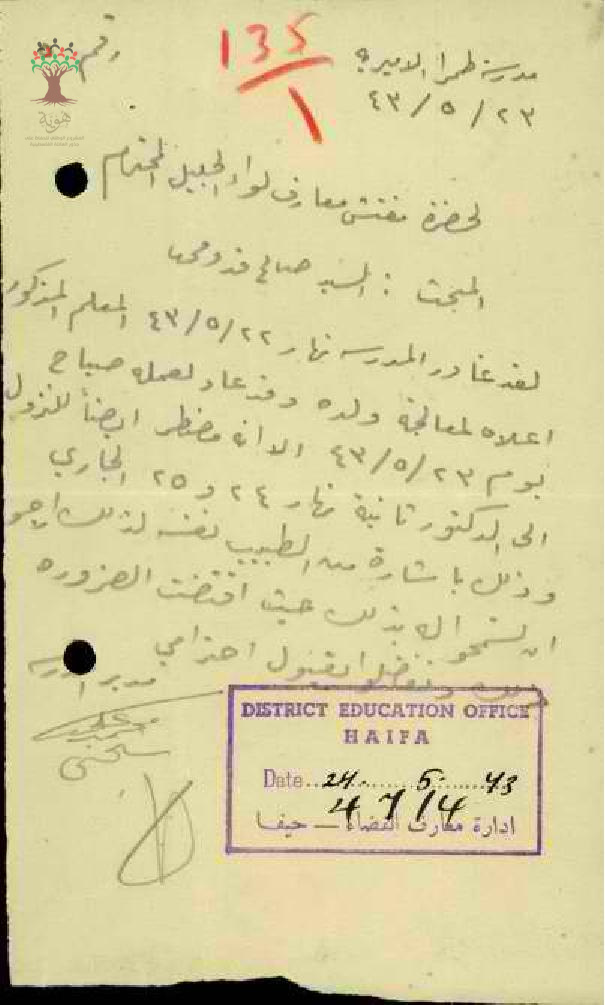 رقم
135/1
مدرسة طمرا الاميرية
٤٣/٥/٢٣
لحضرة مفتش معارف لواء الجليل المحترم
المبحث : السيد صالح قدومي
لقد غادر المدرسه نهار ٤٣/٥/٢٢ المعلم المذكور
اعلاه لمعالجة ولده وقد عاد لعمله صباح
يوم ٤٣/٥/٢٣ الا انه مضطر ايضاً للنزول
الى الدكتور ثانية نهار ٢٤ و ٢٥ الجاري
وذلك باشارة من الطبيب نفسه لذلك ارجو
ان تسمحوا له بذلك حيث اقتضت الضروره
ذلك وتفضلوا بقبول احترامي
مدير المدرسه
DISTRICT EDUCATION OFFICE
HAIFA
Date 24 5 43
4 7/4
ادارة معارف القضاء – حيفا
هوية